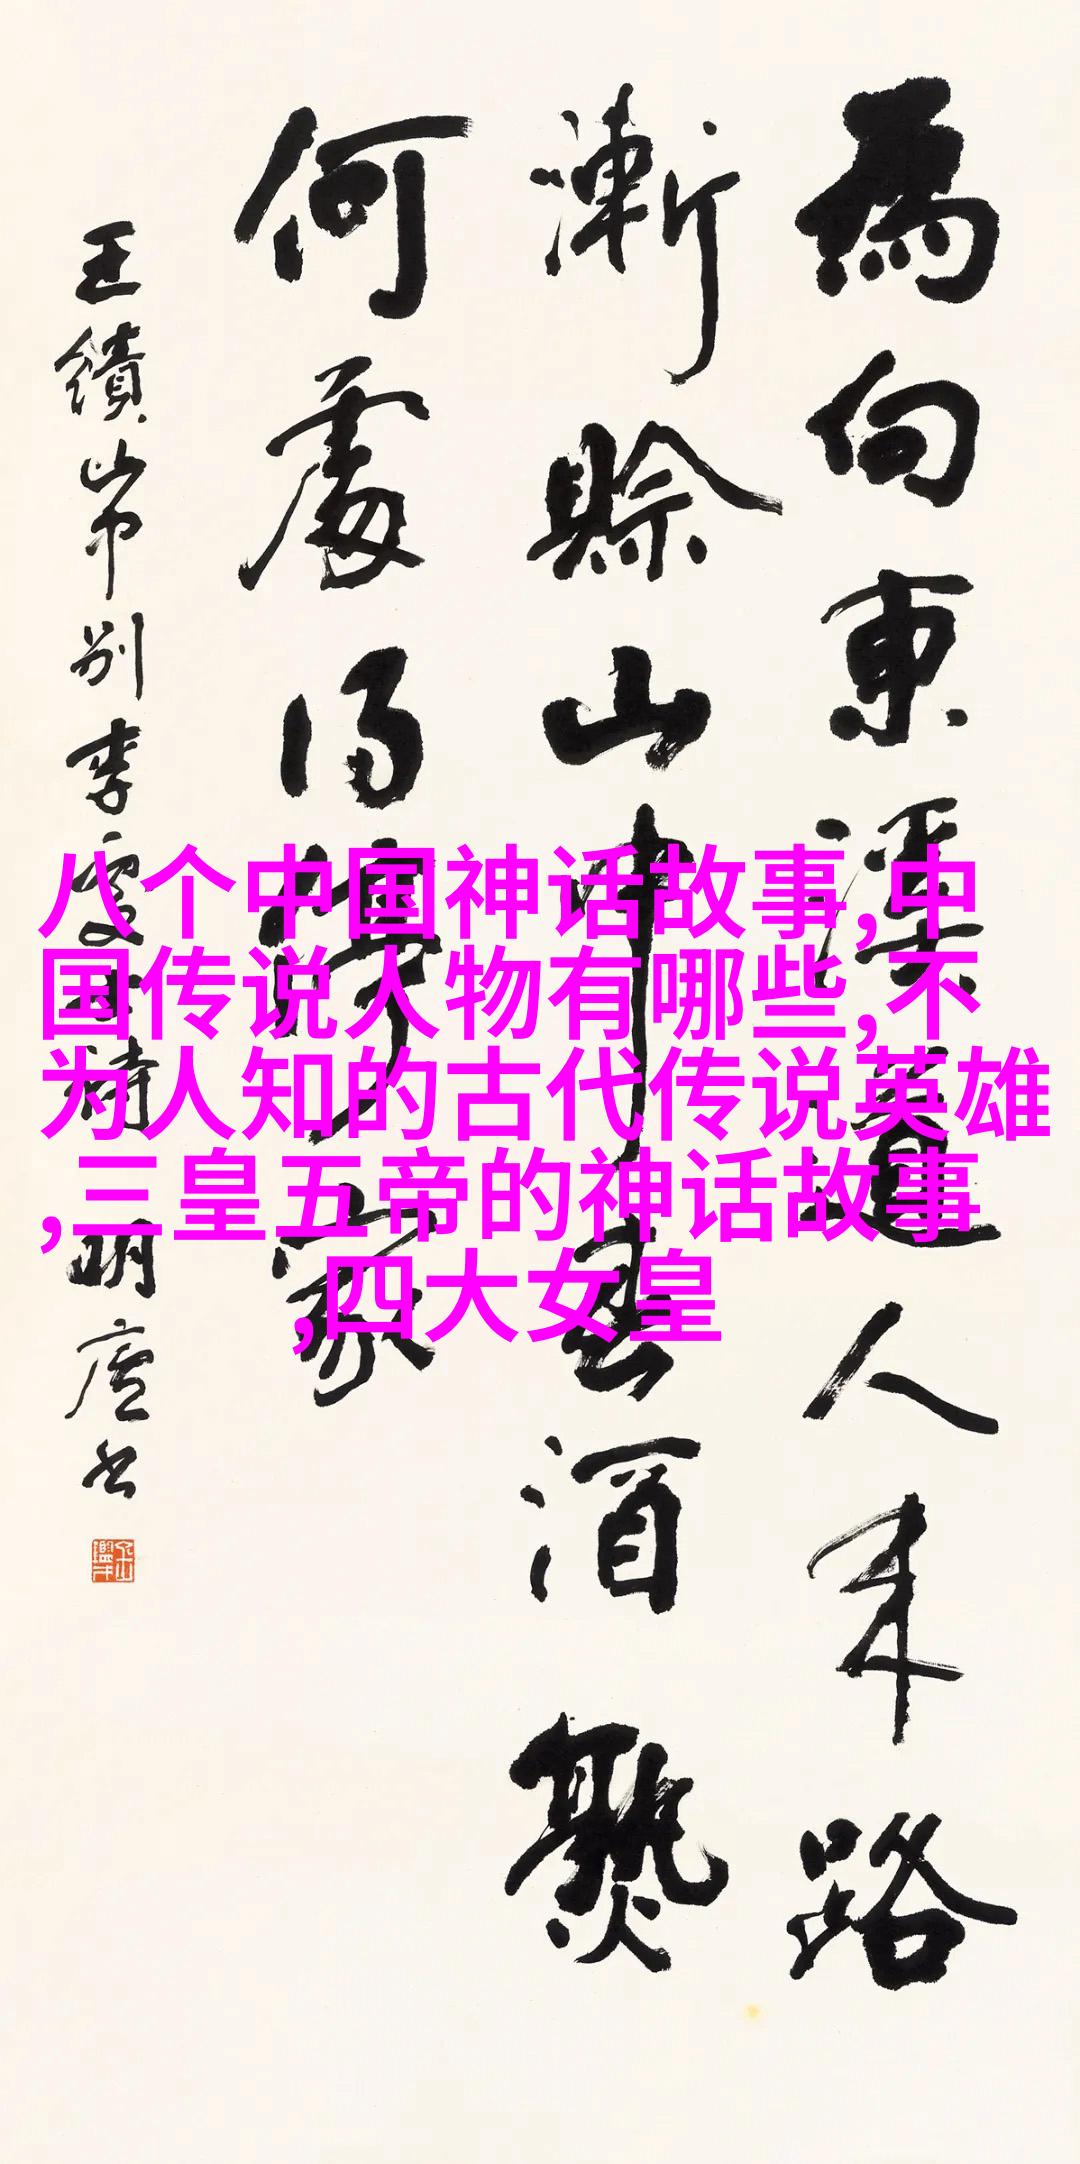 為向東溪道人來路
漸賒山中春酒熟
何處得停家
王績山中別李處士詩 明廬書
八个中国神话故事,中
国传说人物有哪些,不
为人知的古代传说英雄
,三皇五帝的神话故事
,四大女皇